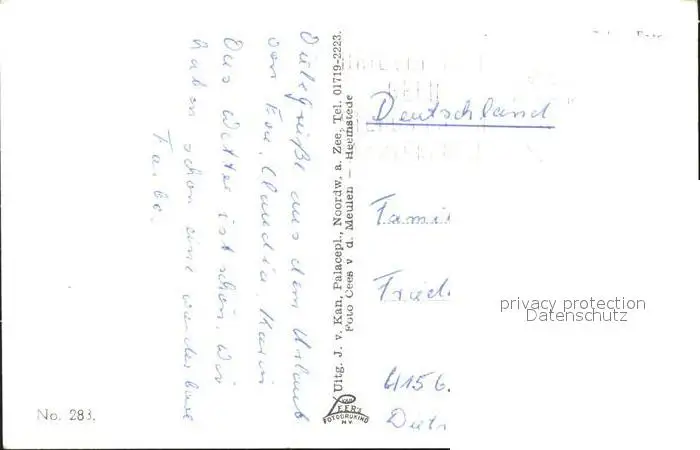 Viele Grüße aus dem Urlaub
von Eva, Claudia, Karin
Das Wetter ist schön. Wir
haben schon eine wunderbare
Farbe.
Uitg. J. v. Kan, Palacepl., Noordw. a. Zee, Tel. 01719-2223.
Foto Cees v d. Meulen – Heemstede
VAN
LEER's
FOTODRUKIND
N.V.
Deutschland
Famil
Fried
4156.
privacy protection
Datenschutz
No. 283.